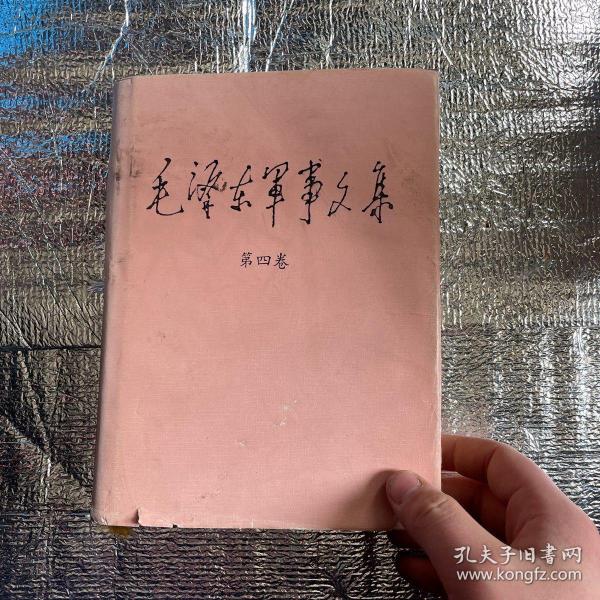 毛泽东軍事文集
第四卷
孔夫子旧书网
www.kongfz.com